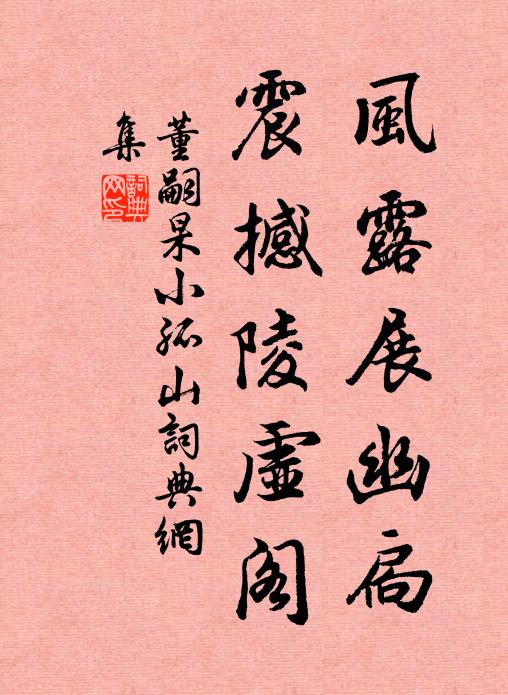 風露展幽扃
震撼陵虛閣
董嗣杲小孤山詞典網
集
詞典网印